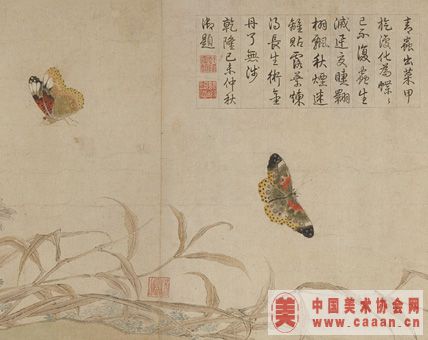 青蟲出菜甲
旋復化為蝶〻
已不復蟲生
滅速交睫翾
栩秋煙迷
離貼露葉煉
得長生術金
丹了無涉
乾隆己未仲秋
御題
美
中国美术协会网
www.caaan.cn